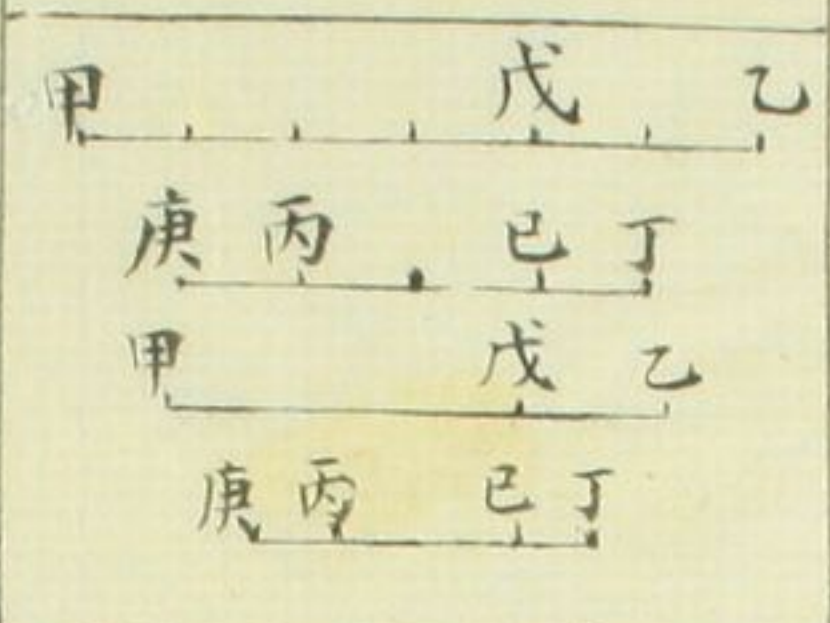 甲戊乙
庚丙已丁
甲戊乙
庚丙已丁